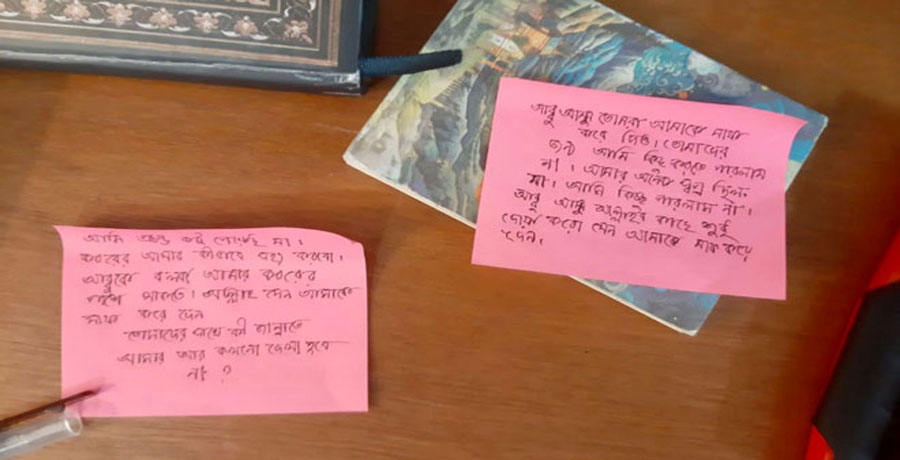 আমি অনেক কষ্ট পেয়েছি মা।
কবরের আযাব কীভাবে সহ্য করবো।
আব্বুকে বলবা আমার কবরের
পাশে থাকতে। আল্লাহ যেন আমাকে
মাফ করে দেন
তোমাদের সাথে কী জান্নাতে
আমার আর কখনো দেখা হবে
না ?
আব্বু আম্মু তোমরা আমাকে মাফ
করে দিও। তোমাদের
জন্য আমি কিছু করতে পারলাম
না। আমার অনেক স্বপ্ন ছিল
মা। আমি কিছু পারলাম না।
আব্বু আম্মু আল্লাহর কাছে শুধু
দোয়া করো যেন আমাকে মাফ করে
দেন।